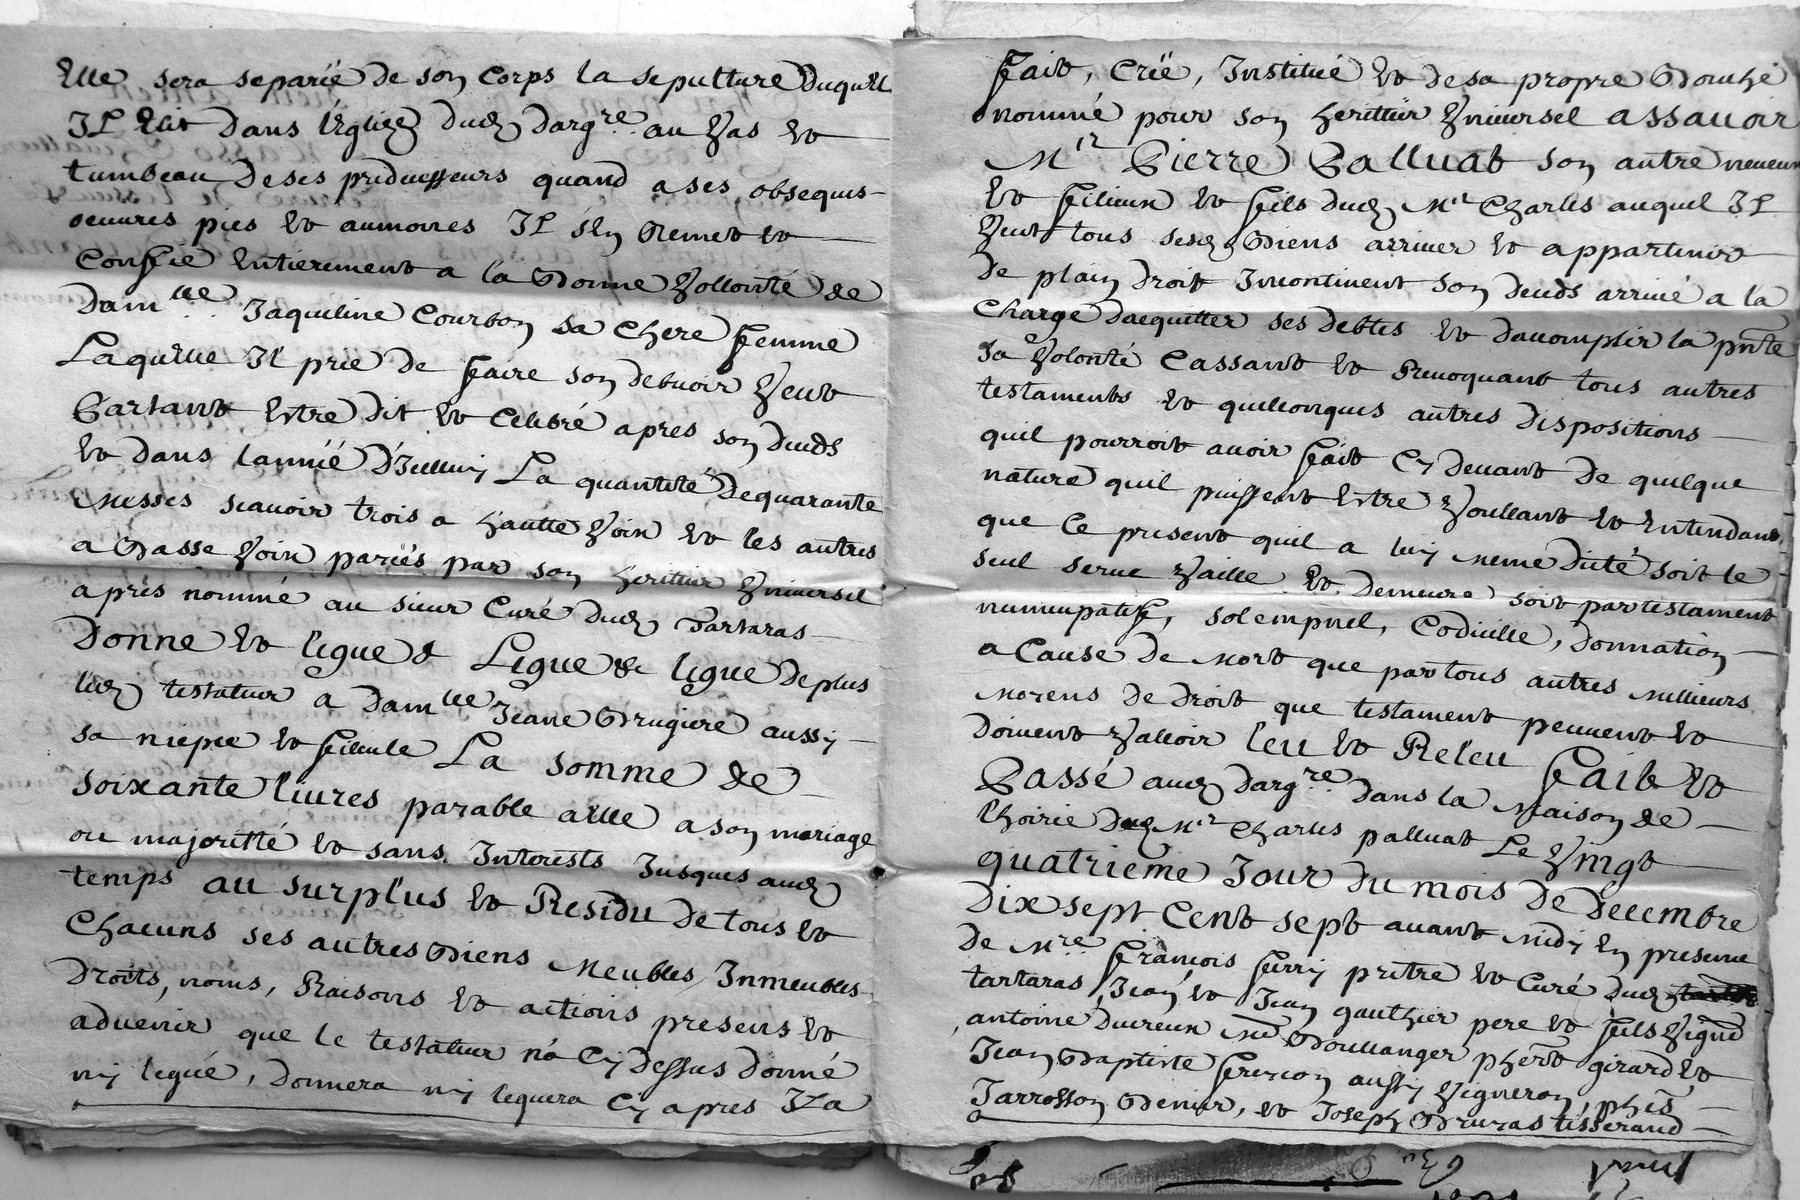 Elle sera separëe de son Corps la sepulture duquel
Il Elit dans l'Eglize dud dargre. au Vas et
tumbeau de ses preduesseurs quand a ses obseques
oeuures pies et aumones Il s'En Remet et
Confie Entierement a la Bonne Vollonté de
Damlle. Jaqueline Courbon sa chere femme
Laquelle Il prie de faire son debuoir Veut
Partant Estre dit et Celebré apres son deceds
et dans l'année D'Icelluy La quantité de quarante
Messes scauoir trois a hautte Voix et les autres
a Basse Voix paÿés par son heritier Vniuersel
après nommé au sieur Curé dud Tartaras
Donne et legue & Legue & legue de plus
led testateur a Damlle Jeane Brugiere aussy
sa niepce et filleule La somme de
soixante liures payable a elle a son mariage
ou majoritté et sans Interests Jusques aud
temps au surplus et Residu de tous et
Chacuns ses autres Biens Meubles Inmeubles
Droits, noms, Raisons et actions presens et
aduenir que le testateur n'a Cy Dessus donné
ny legué, donnera ny leguera Cy apres Il a
fait, Creë, Institué et de sa propre Bouche
nommé pour son heritier Vniuersel assauoir
Mr Pierre Palluat son autre neueu
et filieux et fils dud Mr Charles auquel Il
Veut tous sesd Biens arriuer et appartenir
de plain droit Incontinent son deceds arriué a la
Charge dacquitter ses debtes et daccomplir la pnte
sa Volonté Cassant et Reuoquant tous autres
testaments et quelconques autres dispositions
quil pourroit auoir fait Cy deuant de quelque
nature quil puissent Estre Voullant et Entendant
que Ce present quil a luy meme dicté soit le
seul serue Vaille et demeure soit par testament
nuncupatif, solempnel, Codicille, donnation
a Cause de Mort que par tous autres meilleurs
moyens de droit que testament peuuent et
doiuent Valloir leu et Releu fait et
Passé aud dargre. dans la Maison de
lhoirie dud Mr Charles palluat Le Vingt
quatrieme Jour du mois de Decembre
Dix sept Cent sept auant midy En presence
de Mre francois ferry prêtre et Curé dud
tartaras, Jean et Jean gauthier pere et fils Vignd
antoine ducreux Md Boullanger phert girard et
Jean Baptiste frercon aussy Vigneron, phës
Jarrosson Benier, et Joseph Bruyas tisserand